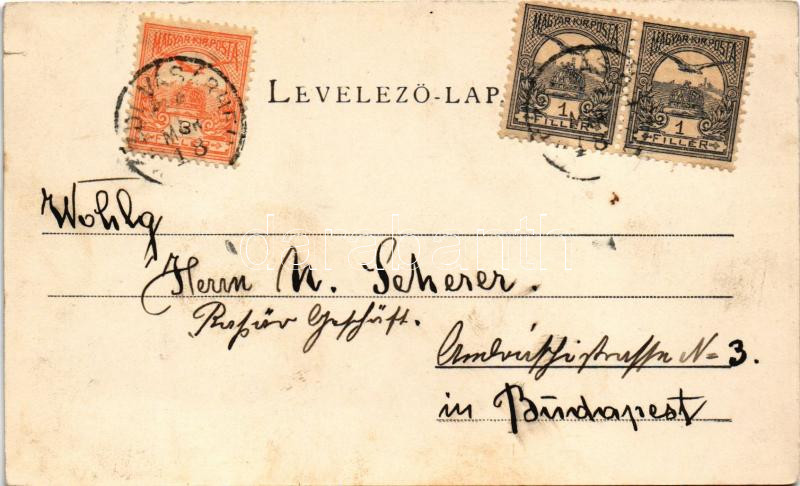 MAGYAR·KIR·POSTA
FILLÉR
MAGYAR·KIR·POSTA
1
FILLÉR
MAGYAR·KIR·POSTA
1
FILLÉR
LEVELEZŐ-LAP
Wohlg
Herrn N. Scherer.
Rasiär Geschäft.
Andráschistrasse N= 3.
in Budapest
darabanth